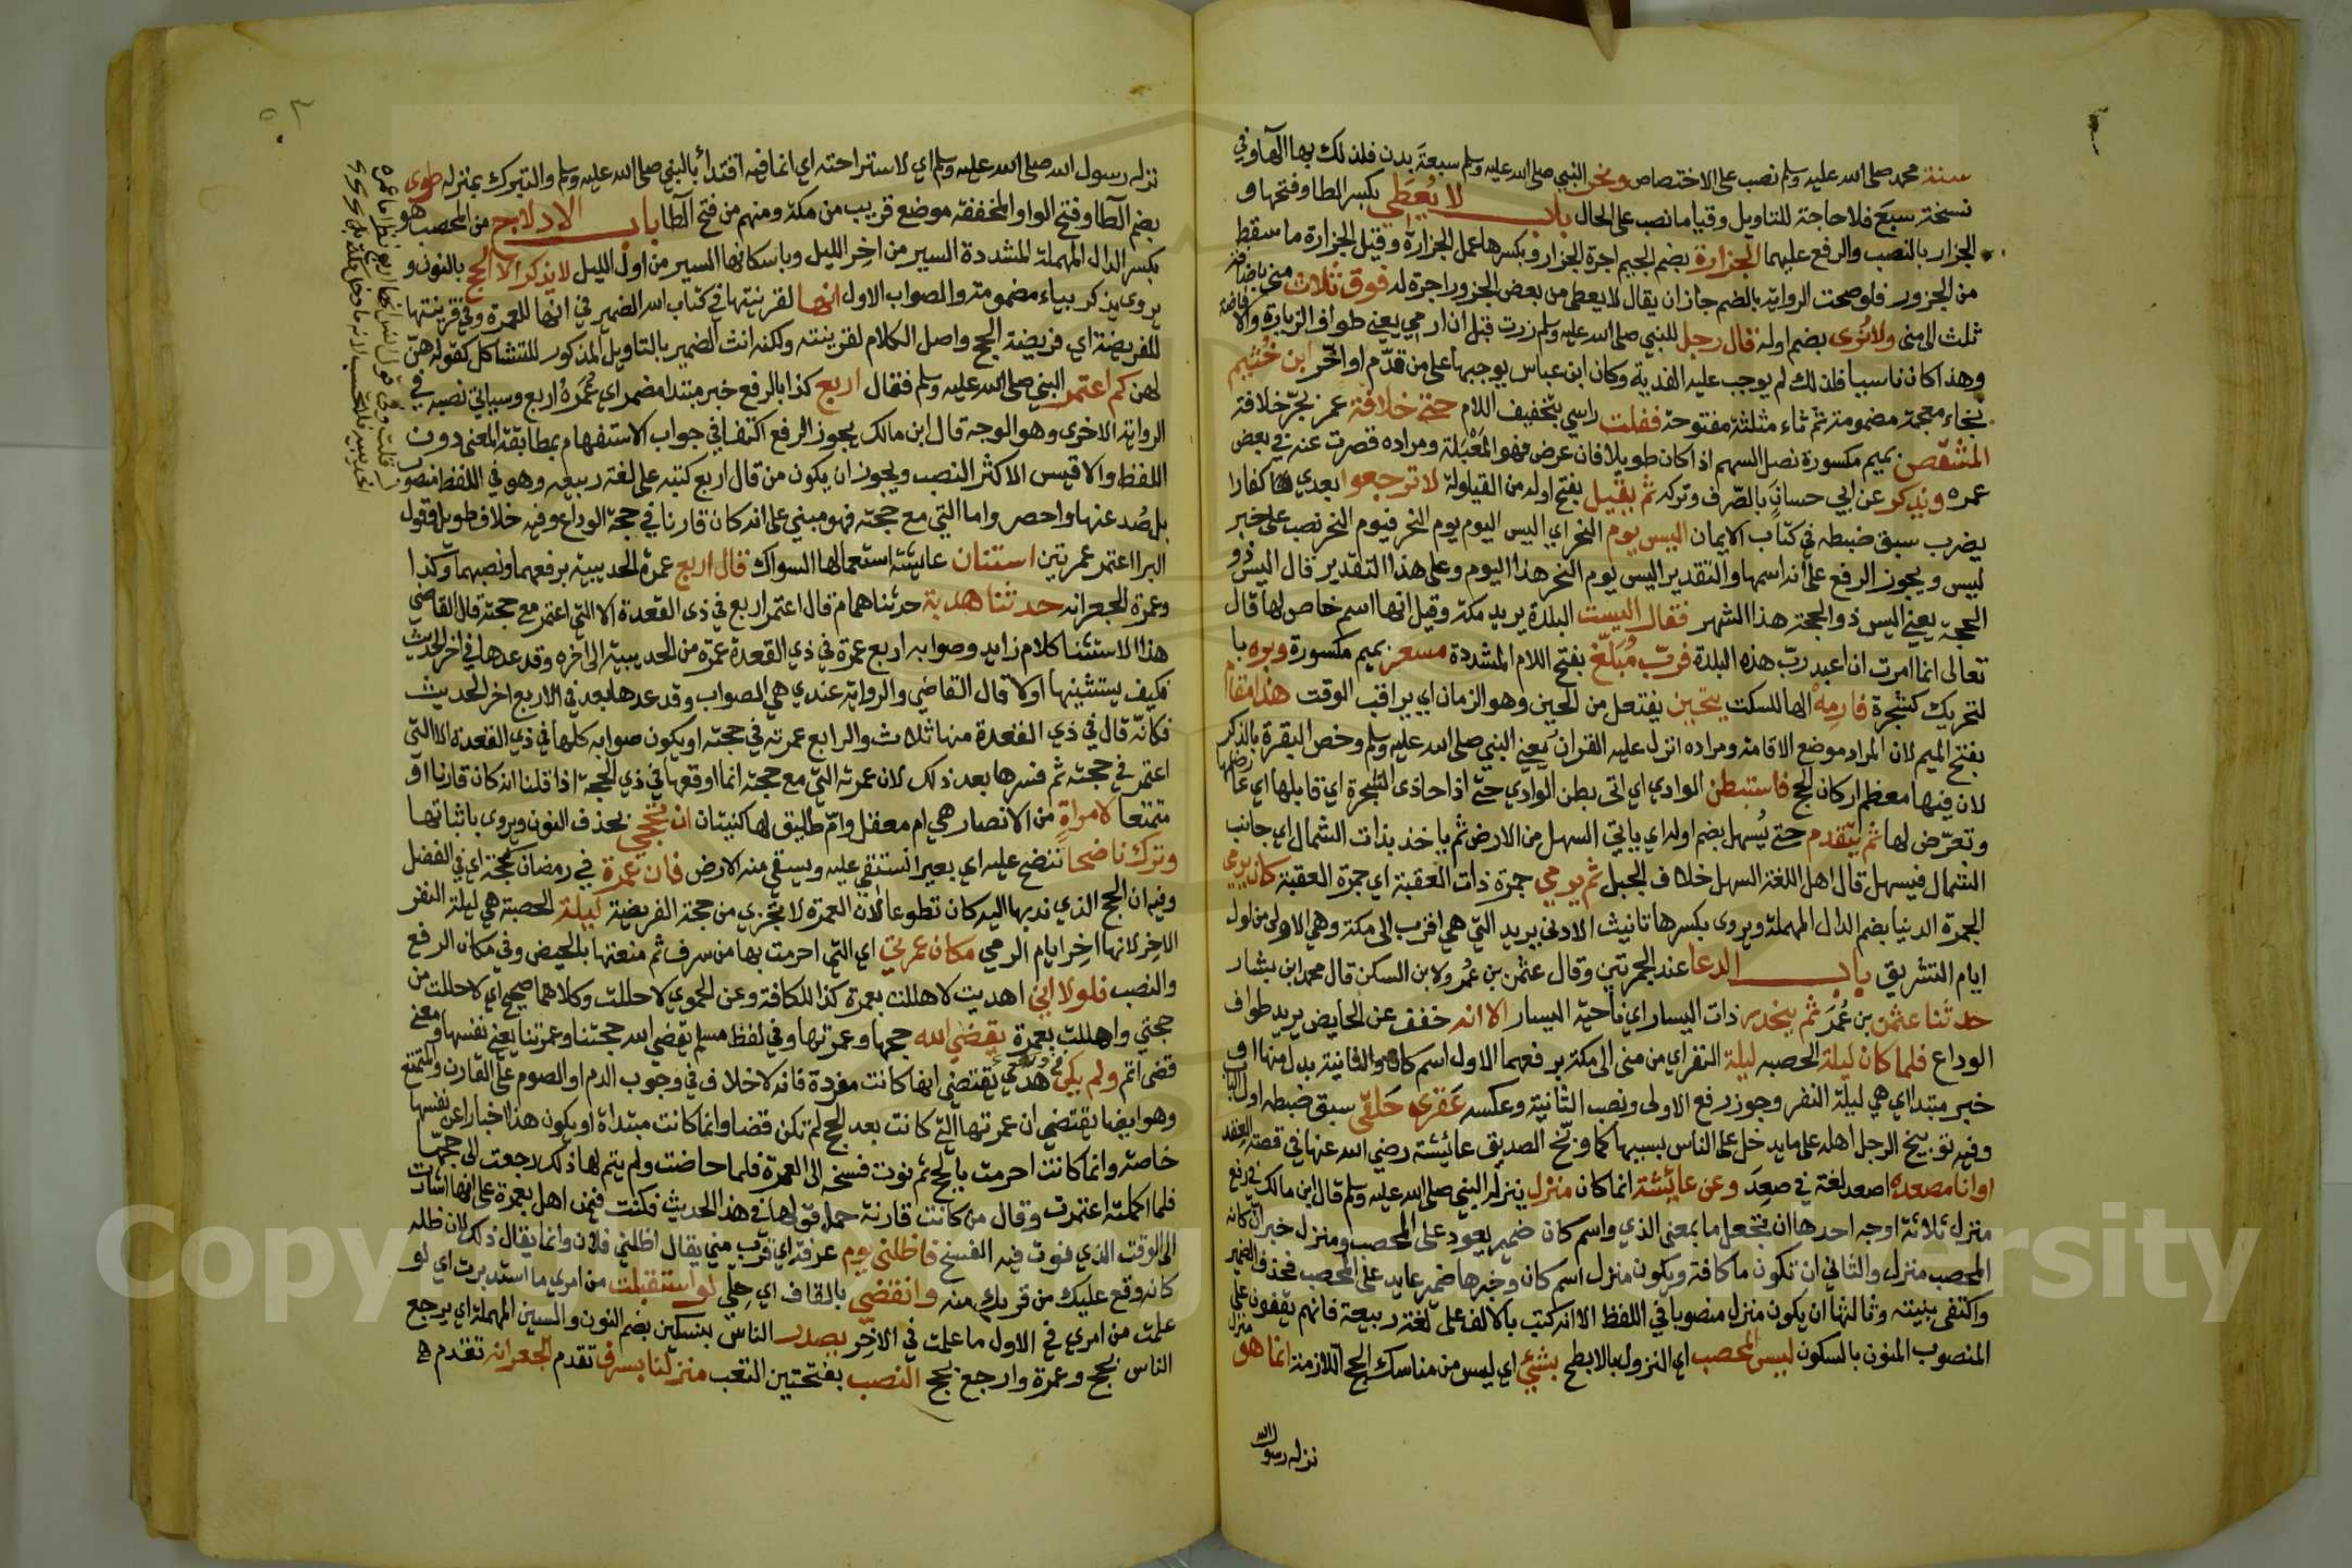 سنة محمد صلى الله عليه وسلم نصب على الاختصاص ونحر النبي صلى الله عليه وسلم سبعة بدن فلذلك بها الهآء وفي
نسخة سبع فلا حاجة للتاويل وقياما نصب على الحال باب لا يُعطِي بكسر الطا وفتحها و
الجزار بالنصب والرفع عليهما الجزارة بضم الجيم اجرة الجزار وبكسرها عمل الجزارة وقيل الجزارة ما سقط
من الجزور فلو صحت الرواية بالضم جاز ان يقال لا يعطى من بعض الجزور اجرة له فوق ثلاث منى باضافة
ثلث الى منى ولا نُرى بضم اوله قال رجل للنبي صلى الله عليه وسلم زرت قبل ان ارمي يعني طواف الزيارة والافاضة
وهذا كان ناسيا فلذلك لم يوجب عليه الفدية وكان ابن عباس يوجبها على من قدّم او اخّر ابن خُثيم
بخاء معجمة مضمومة ثم ثاء مثلثة مفتوحة ففلت راسي بتخفيف اللام حتى خلافة عمر بجرّ خلافة
المشقص بميم مكسورة نصل السهم اذا كان طويلا فان عرض فهو المَعْبَلة ومراده قصرت عنه في بعض
عمره ويذكر عن ابي حسان بالصّرف وتركه ثم يقيل بفتح اوله من القيلولة لا ترجعوا بعدي كفارا
يضرب سبق ضبطه في كتاب الايمان اليس يوم النحر اي اليس اليوم يوم النحر فيوم النحر نصب على خبر
ليس ويجوز الرفع على انه اسمها والتقدير اليس يوم النحر هذا اليوم وعلى هذا التقدير قال اليس ذو
الحجة يعني اليس ذو الحجة هذا الشهر فقال اليست البلدة يريد مكة وقيل انها اسم خاص لها قال
تعالى انما امرت ان اعبد ربّ هذه البلدة فربّ مُبلّغ بفتح اللام المشددة مسعر بميم مكسورة وبره با
لتحريك كشجرة فارمِهْ الها للسكت يتحين يفتعل من الحين وهو الزمان اي يراقب الوقت هذا مقام
بفتح الميم لان المراد موضع الاقامة ومراده انزل عليه القران يعني النبي صلى الله عليه وسلم وخص البقرة بالذكر
لان فيها معظم اركان الحج فاستبطن الوادي اي اتى بطن الوادي حتى اذا حاذى الشجرة اي قابلها اي عارضها
وتعرّض لها ثم يتقدم حتى يُسهل بضم اوله اي ياتي السهل من الارض ثم ياخذ بذات الشمال اي جانب
الشمال فيسهل قال اهل اللغة السهل خلاف الجبل ثم يرمي جمرة ذات العقبة اي جمرة العقبة كان يرمي
الجمرة الدنيا بضم الدال المهملة ويروى بكسرها تانيث الادنى يريد التي هي اقرب الى مكة وهي الاولى من اول
ايام التشريق باب الدعا عند الجمرتين وقال عثمن بن عُمر ولابن السكن قال محمد ابن بشار
حدثنا عثمن بن عُمَر ثم ينحدر ذات اليسار اي ناحية اليسار الا انه خفف عن الحايض يريد طواف
الوداع فلما كان ليلة الحصبه ليلة النفر اي من منى الى مكة برفعهما الاول اسم كان والثانية بدل منها او
خبر مبتدا اي هي ليلة النفر وجوز رفع الاولى ونصب الثانية وعكسه عَقرى حَلقى سبق ضبطه اول الباب
وفيه توبيخ الرجل اهله على ما يدخل على الناس بسببها كما وبّخ الصديق عائشة رضي الله عنها في قصة العقد
اوانا مصعده اصعد لغة في صعِدَ وعن عايشة انما كان منزل ينزله النبي صلى الله عليه وسلم قال ابن مالك في رفع
منزل ثلاثة اوجه احدها ان تجعل ما بمعنى الذي واسم كان ضمير يعود على المحصب ومنزل خبر ان كانه
المحصب منزل والثاني ان تكون ما كافة ويكون منزل اسم كان وخبرها ضمير عايد على المحصب فحذف الضمير
واكتفى بنيته وثالثها ان يكون منزل منصوبا في اللفظ الا انه كتب بلا الف على لغة ربيعة فانهم يقفون على
المنصوب المنون بالسكون ليس المحصب اي النزول بالابطح بشئ اي ليس من مناسك الحج اللازمة انما هو منزل
نزله رسول الله
نزله رسول الله صلى الله عليه وسلم اي لاستراحته اي انما فيه اقتداءٌ بالنبي صلى الله عليه وسلم والتبرك بمنزله طوى
بضم الطا وفتح الواو المخففة موضع قريب من مكة ومنهم من فتح الطا باب الادلاج من المحصب هو
بكسر الدال المهملة المشددة السير من اخر الليل وباسكانها السير من اول الليل لا يذكر الا الحج بالنون و
يروى يذكر بياء مضمومة والصواب الاول انها لقرينتها في كتاب الله الضمير في انها للعمرة وفي قرينتها
للفريضة اي فريضة الحج واصل الكلام لقرينته ولكنه انث الضمير بالتاويل المذكور للتشاكل كقوله هنّ
لهن كم اعتمر النبي صلى الله عليه وسلم فقال اربع كذا بالرفع خبر مبتدا مضمر اي عُمَرُهُ اربع وسياتي نصبه في
الرواية الاخرى وهو الوجه قال ابن مالك يجوز الرفع اكتفا في جواب الاستفهام بمطابقة المعنى دون
اللفظ والاقيس الاكثر النصب ويجوز ان يكون من قال اربع كتبه على لغة ربيعه وهو في اللفظ منصوب
بل صُد عنها واحصر واما التي مع حجته فهو مبني على انه كان قارنا في حجة الوداع وفيه خلاف طويل وقول
البرا اعتمر عمرتين استنان عايشة استعمالها السواك قال اربع عمرة الحديبية برفعهما ونصبهما وكذا
وعمرة الجعرانه حدثنا هدبة حدثنا همام قال اعتمر اربع في ذي القعدة الا التي اعتمر مع حجته قال القاضي
هذا الاستثنا كلام زايد وصوابه اربع عمرة في ذي القعدة عمرة من الحديبية الى اخره وقد عدها في اخر الحديث
فكيف يستثنيها اولا قال القاضي والرواية عندي هي الصواب وقد عدها بعد في الاربع اخر الحديث
فكانّه قال في ذي القعدة منها ثلاث والرابع عمرته في حجته او يكون صوابه كلها في ذي القعدة الا التي
اعتمر في حجته ثم فسرها بعد ذلك لان عمرته التي مع حجته انما اوقعها في ذي الحجة اذا قلنا انه كان قارنا او
متمتعا لامراةٍ من الانصار هي ام معقل وامّ طليق لها كنيتان ان تحجي بحذف النون ويروى باثباتها
وترك ناضحا ننضح عليه اي بعير انستقي عليه ويسقي منه الارض فان عمرة في رمضان كحجة اي في الفضل
وفيه ان الحج الذي ندبها اليه كان تطوعا لان العمرة لا تجزي من حجة الفريضة ليلة الحصبة هي ليلة النفر
الاخر لانها اخر ايام الرمي مكان عمرتي اي التي احرمت بها من سرف ثم منعتها بالحيض وفي مكان الرفع
والنصب فلولا اني اهديت لاهللت بعمرة كذا للكافة وعن الحموي لاحللت وكلاهما صحيح اي لاحللت من
حجتي واهللت بعمرة يقضى الله حجها وعمرتها وفي لفظ مسلم يقضى الله حجتنا وعمرتنا يعني نفسها ومعنى
قضى اتم ولم يكن هَديٌ يقتضى انها كانت مفردة فانه لا خلاف في وجوب الدم او الصوم على القارن والمتمتع
وهو ايضا يقتضي ان عمرتها التي كانت بعد الحج لم تكن قضا وانما كانت مبتداة او يكون هذا اخبارا عن نفسها
خاصة وانما كانت احرمت بالحج ثم نوت فسخه الى العمرة فلما حاضت ولم يتم لها ذلك رجعت الى حجها
فلما اكملته اعتمرت وقال من كانت قارنة حمل قولها في هذا الحديث فكنت فيمن اهل بعمرة على انها اشارت
الى الوقت الذي نوت فيه الفسخ فاظلني يوم عرفة اي قرب مني يقال اظلني فلان وانما يقال ذلك لان ظله
كانه وقع عليك من قربك منه وانقضي بالقاف اي حِلّي لو استقبلت من امري ما استدبرت اي لو
علمت من امري في الاول ما علمت في الاخر يصدر الناس بنسكين بضم النون والسين المهملة اي يرجع
الناس بحج وعمرة وارجع بحج النصب بفتحتين التعب منزلنا بسرف تقدم الجعرانه تقدم
Copy King University